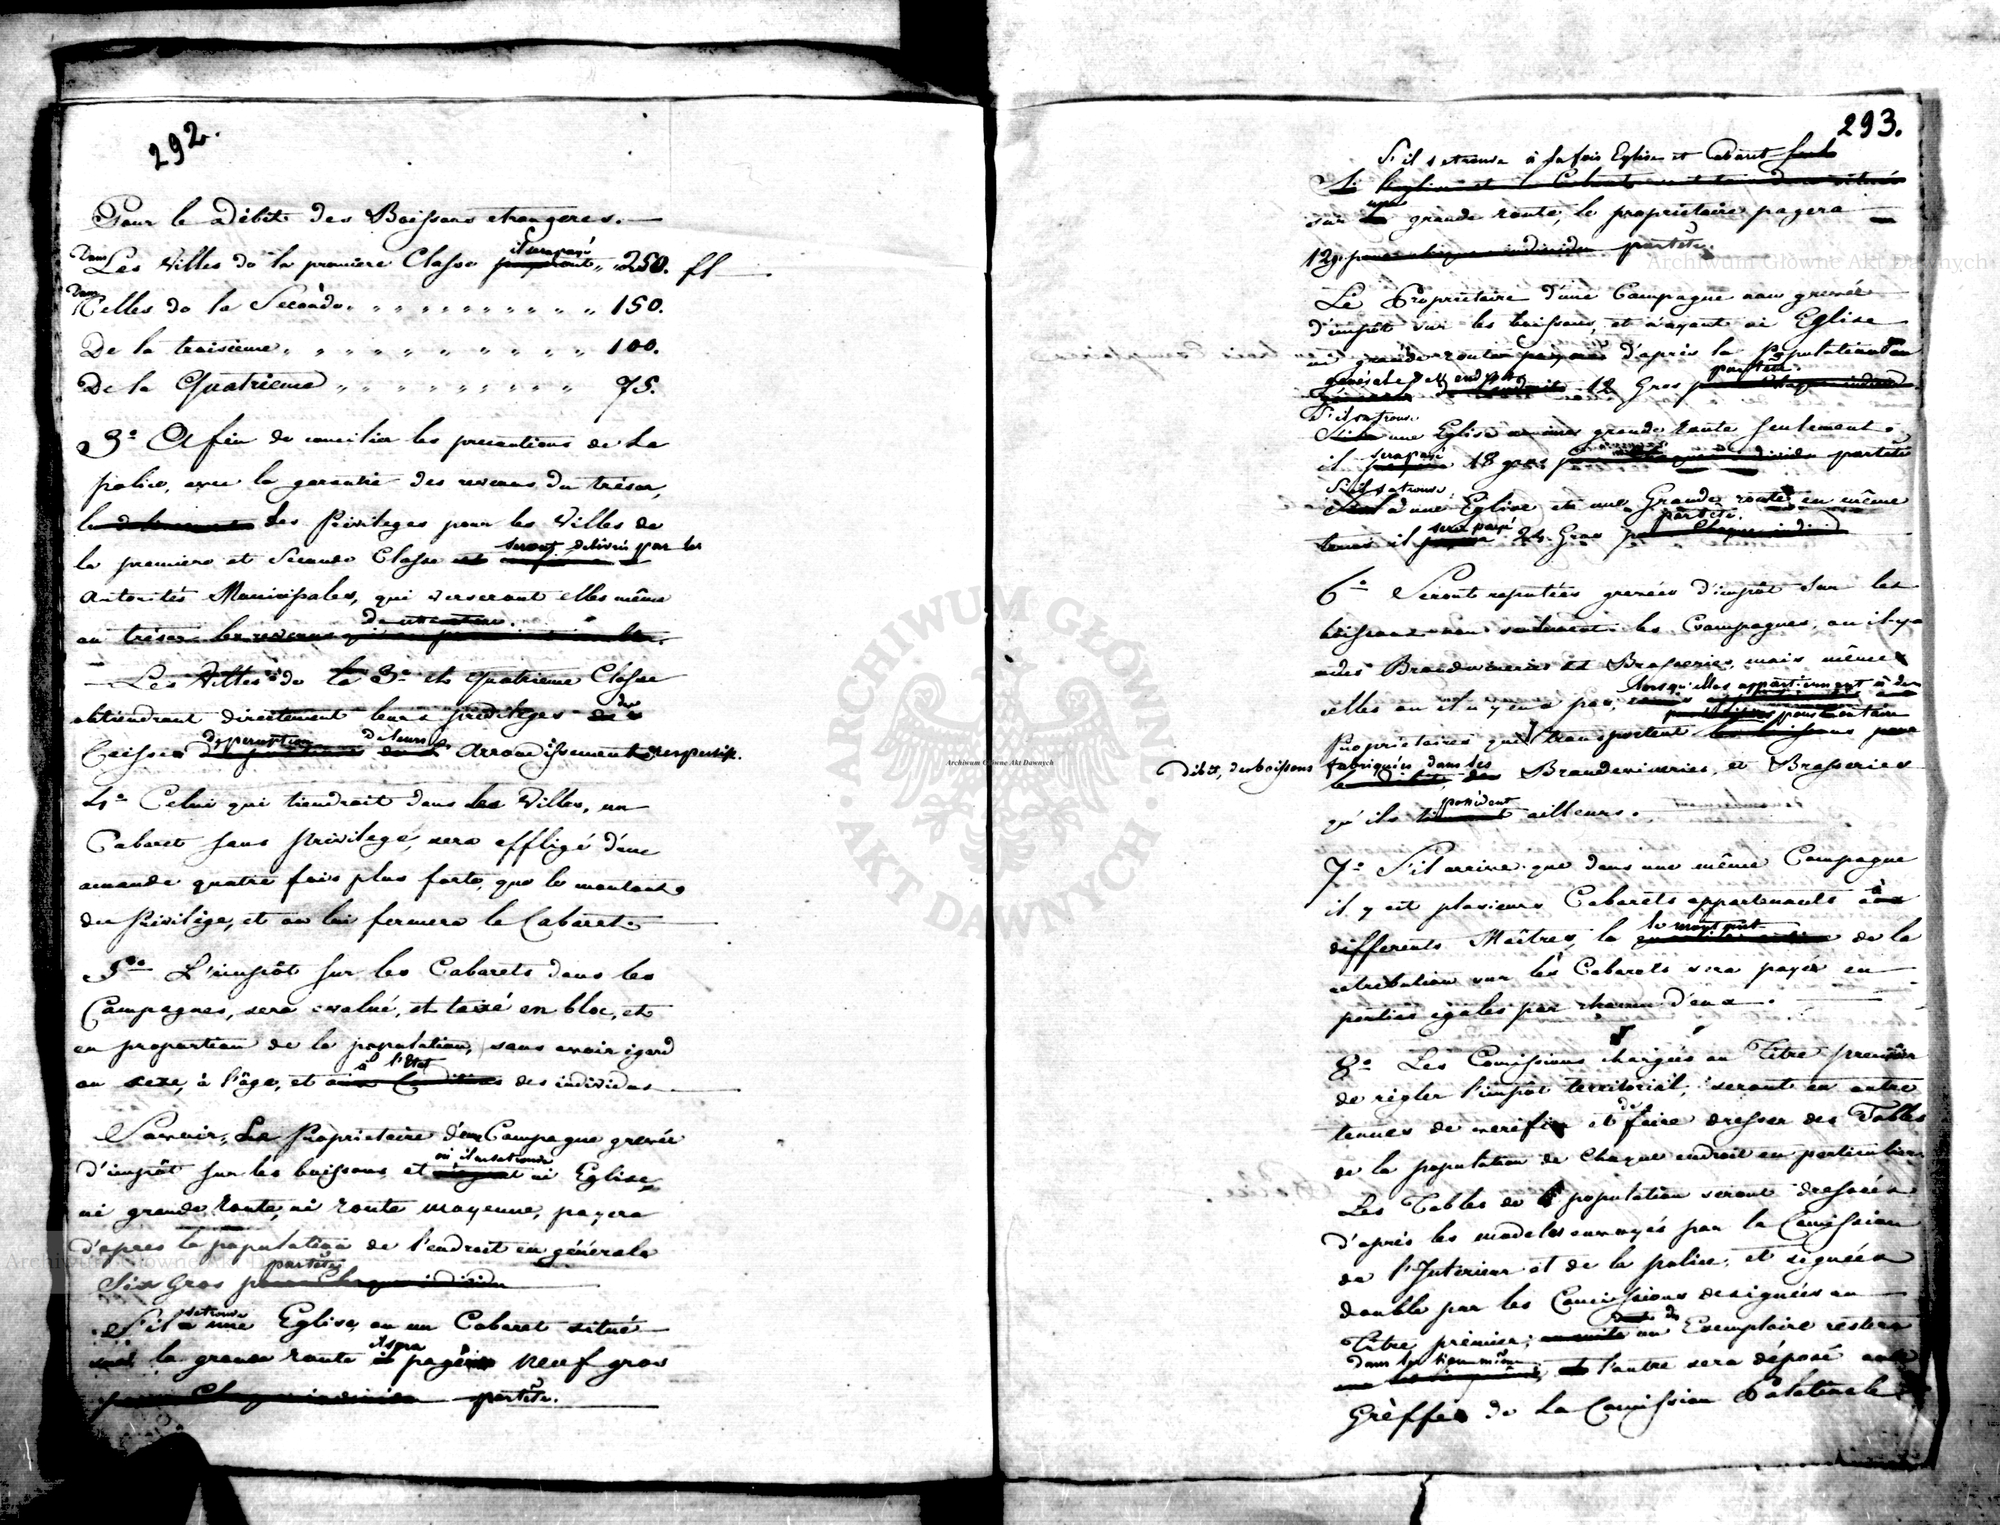 292.
Pour le Débit des Boissons etrangeres.
Dans Les Villes de la premiere Classe il sera payé 250. ff
Dans Celles de la Seconde 150.
De la troisieme 100.
De la Quatrieme 75.
3° Afin de concilier les precautions de la
police, avec la garantie des revenus du trésor,
les Privileges pour les Villes de
la premiere et Seconde Classe seront delivrés par les
Autorités Municipales, qui verseront elles même
au trésor
Les Villes de la 3e et Quatrieme Classe
obtiendront directement leurs privileges des
Caisses de perception de leurs Arrondissements respectifs.
4° Celui qui tiendroit dans les Villes, un
Cabaret sans privilege, sera affligé d'une
amande quatre fois plus forte, que le montant
du Privilège, et on lui fermera le Cabaret.
5° L'impôt sur les Cabarets dans les
Campagnes, sera evalué, et taxé en bloc, et
en proportion de la population, sans avoir égard
au sexe, à l'âge, et à l'Etat des individus
Savoir, Le Propriétaire d'une Campagne grevée
d'impôt sur les boissons, et où il ne se trouve ni Eglise,
ni grande route, ni route moyenne, payera
d'apres la population de l'endroit en générale
Six Gros par tête
S'il se trouve une Eglise, ou un Cabaret situé
la grande route il sera payé neuf gros
par tête.
293.
S'il se trouve à la fois Eglise et Cabaret
sur une grande route, le propriétaire payera
12g. par tête.
Le Propriétaire d'une Campagne non grevée
d'impôt sur les boissons, et n'ayant ni Eglise
ni grande route d'après la Population
générale de cet endroit 12 Gros par tête.
S'il se trouve une Eglise ou une grande route seulement
il sera payé 18 gros par tête
S'il se trouve une Eglise et une Grande route en même
tems il sera payé 24 Gros par tête.
6° Seront reputées grevées d'impôt sur les
boissons non seulement les Campagnes, où il y a
des Brandevineries et Brasseries, mais même
celles où il n'y en a pas, lorsqu'elles appartiennent à des
Propriétaires qui transportent pour
débit, des boissons fabriquées dans les Brandevineries, et Brasseries
qu'ils possèdent ailleurs.
7° S'il arrive que dans une même Campagne
il y ait plusieurs Cabarets appartenants à
differents Maîtres, le montant de la
retribution sur les Cabarets sera payée en
parties égales par chacun d'eux.
8° Les Comissions chargées au Titre premier
de régler l'impôt territorial, seront en outre
tenues de verifier et de faire dresser des Tables
de la population de Chaque endroit en particulier.
Les Tables de population seront dressées
d'après les modeles envoyés par la Comission
de l'Interieur et de la police, et signées
double par les Comissions designées au
Titre premier; un Exemplaire restera
dans les lieux même, l'autre sera déposé au
Grèffe de la Comission Palatinale